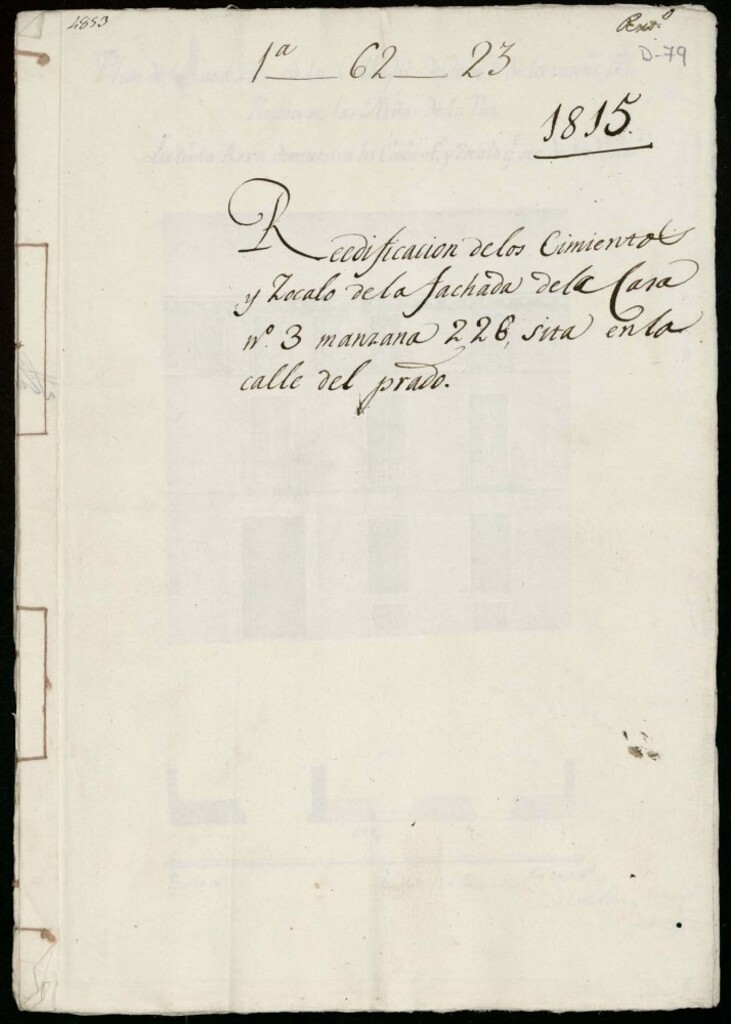 4883
D-79
1ª 62 23
1815.
Reedificacion delos Cimientos
y Zocalo dela fachada dela Casa
nº. 3 manzana 226, sita en la
calle del prado.